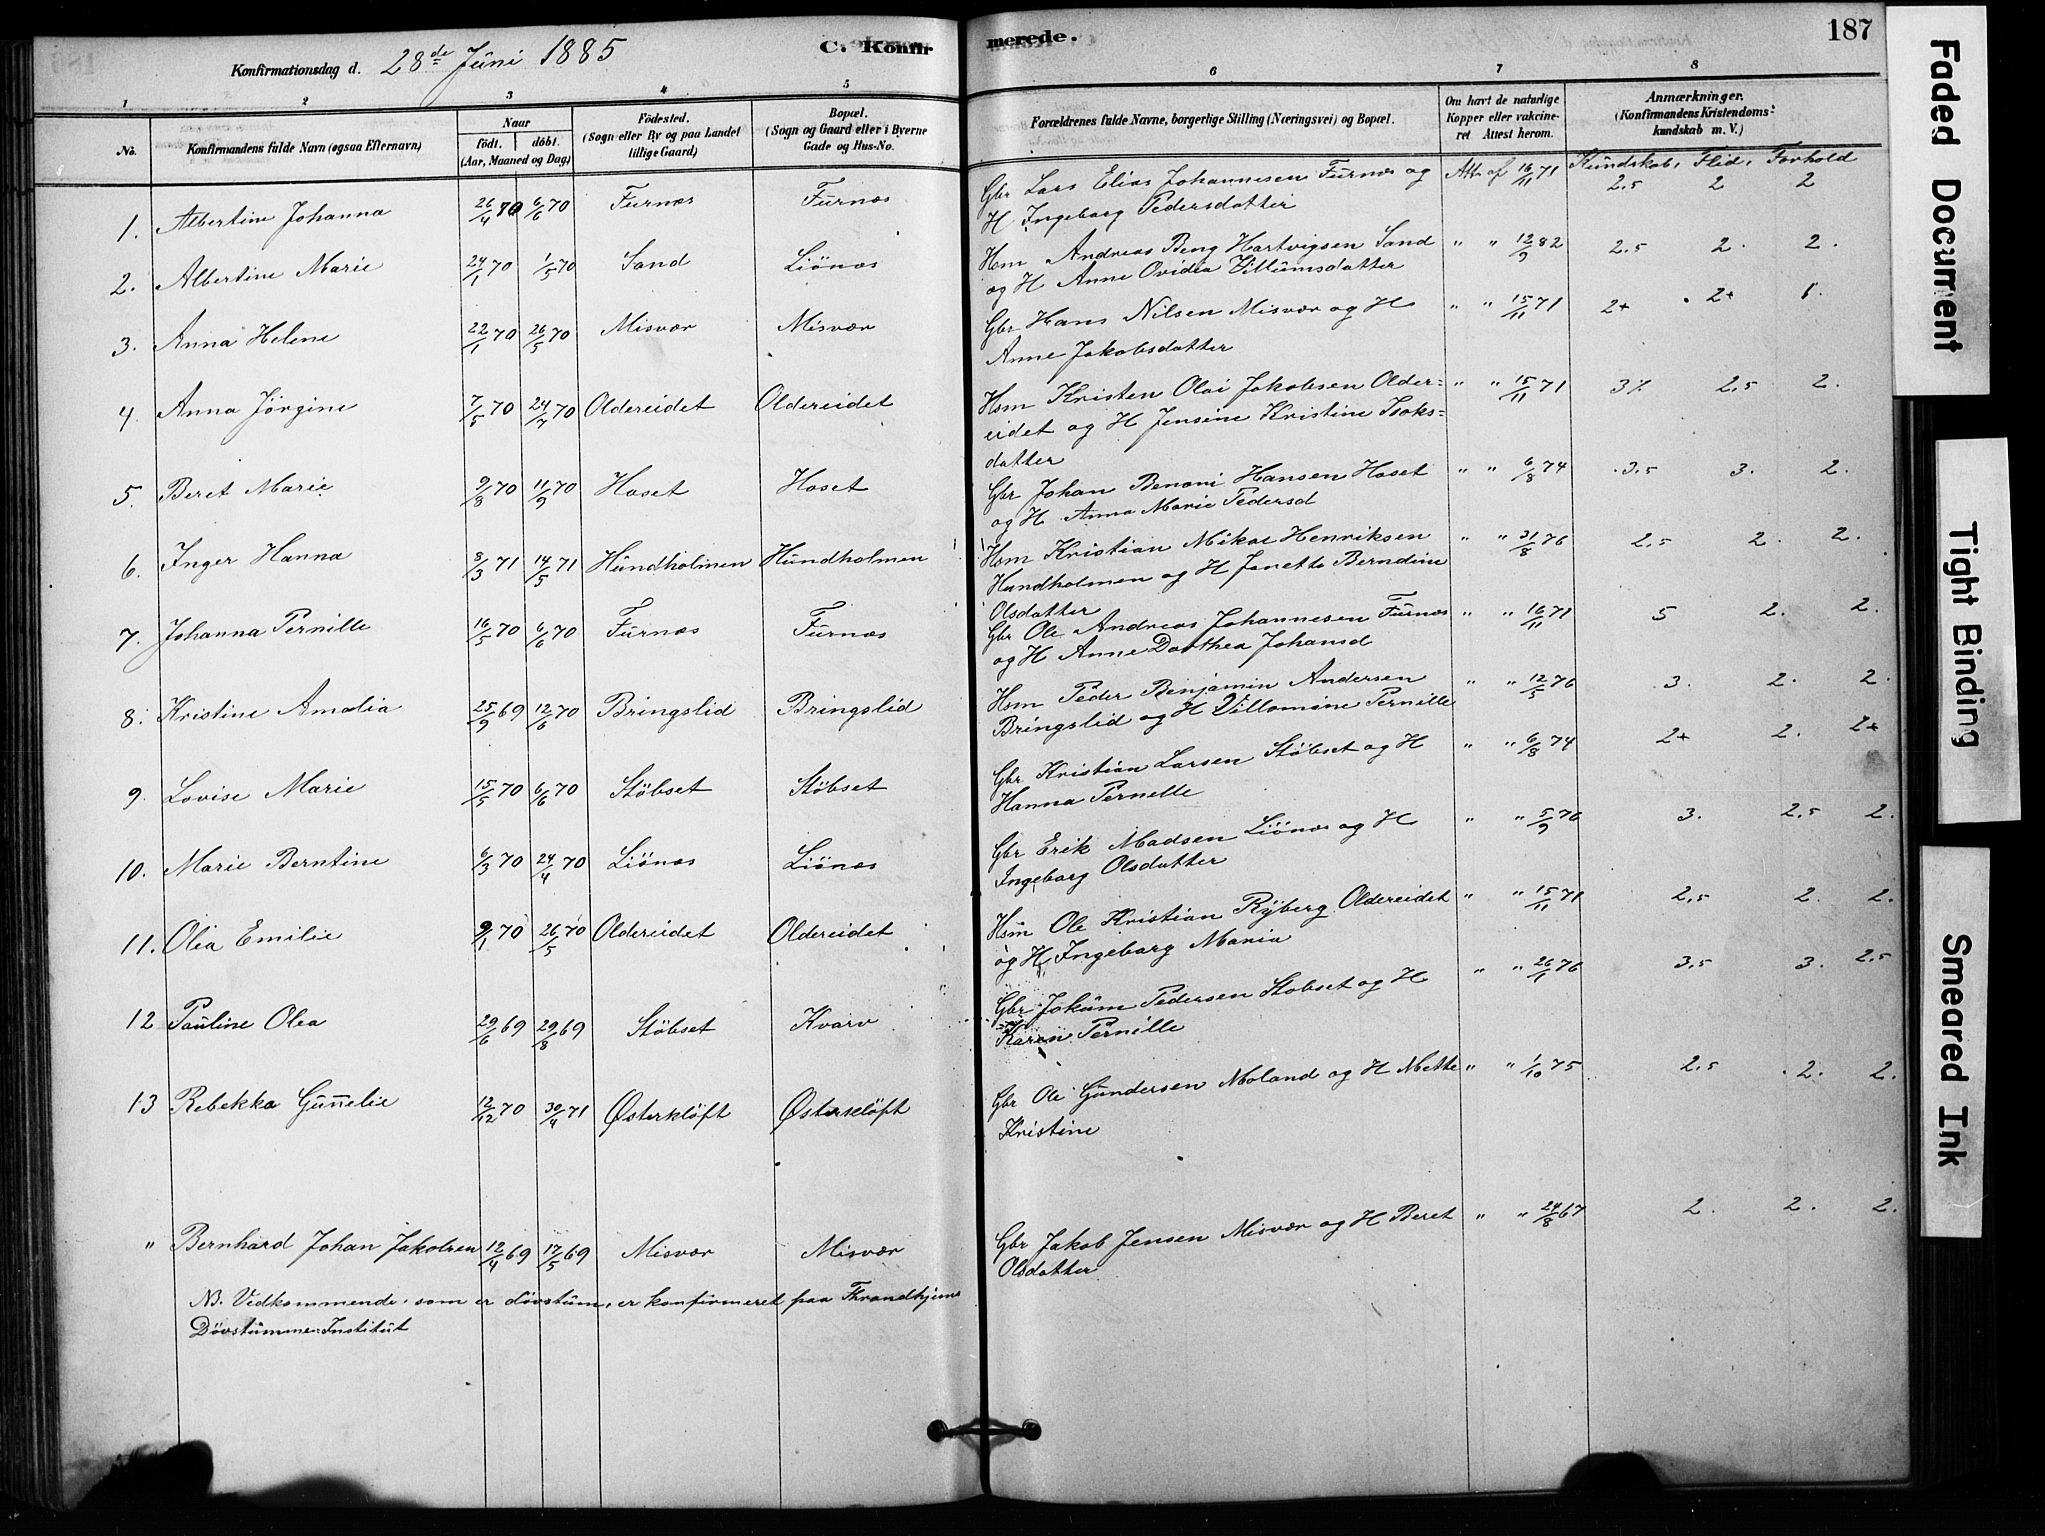 187
Konfirmationsdag d. 28de Juni 1885
C. Konfirmerede.
1 2 3 4 5 6 7 8
No. Konfirmandens fulde Navn (ogsaa Efternavn) Naar födt. döbt. (Aar, Maaned og Dag) Födested. (Sogn eller By og paa Landet tillige Gaard) Bopæl. (Sogn og Gaard eller i Byerne Gade og Hus-No. Forældrenes fulde Navne, borgerlige Stilling (Næringsvei) og Bopæl. Om havt de naturlige Kopper eller vakcineret Attest herom. Anmærkninger. (Konfirmandens Kristendomskundskab m. V.)
Kundskab, Flid, Forhold
1. Albertine Johanna 26/4 80 6/6 70 Furnes Furnes Gbr Lars Elias Johannesen Furnes og Att. af 16/11 71 2,5 2 2
H Ingeborg Pedersdatter
2. Albertine Marie 24/1 70 1/5 70 Sand Liönes Hsm Andreas Beng Hartvigsen Sand " " 12/9 82 2,5 2. 2.
og H Anne Ovidia Villumsdatter
3. Anna Helene 22/1 70 26/5 70 Misvær Misvær Gbr Hans Nilsen Misvær og H " " 15/11 71 2+ 2+ 1.
Anne Jakobsdatter
4. Anna Jörgine 7/5 70 24/7 70 Oldereidet Oldereidet Hsm Kristen Olai Jakobsen Older= " " 15/11 71 3% 2,5 2.
eidet og H Jensine Kristine Isaks=
datter
5. Beret Marie 9/8 70 11/9 70 Hoset Hoset Gbr Johan Benoni Hansen Hoset " " 6/8 74 3,5 3. 2.
og H Anna Marie Pedersd
6. Inger Hanna 8/3 71 14/5 71 Hundholmen Hundholmen Hsm Kristian Mikal Henriksen " " 31/8 76 2,5 2. 2.
Hundholmen og H Jenette Berndine
Olsdatter
7. Johanna Pernille 16/5 70 6/6 70 Furnes Furnes Gbr Ole Andreas Johannesen Furnes " " 16/11 71 5 2. 2.
og H Anne Dorthea Johansd
8. Kristine Amalia 25/9 69 12/6 70 Bringslid Bringslid Hsm Peder Benjamin Andersen " " 12/5 76 3. 2. 2.
Bringslid og H Villomine Pernille
9. Lovise Marie 15/5 70 6/6 70 Stöbset Stöbset Gbr Kristian Larsen Stöbset og H " " 6/8 74 2+ 2. 2+
Hanna Pernelle
10. Marie Berntine 6/3 70 24/4 70 Liönes Liönes Gbr Erik Madsen Liönes og H " " 5/9 76 3. 2,5 2.
Ingeborg Olsdatter
11. Olea Emilie 9/1 70 26/5 70 Oldereidet Oldereidet Hsm Ole Kristian Ryberg Oldereidet " " 15/11 71 2,5 2. 2.
og H Ingeborg Maria
12 Pauline Olea 29/6 69 29/8 69 Stöbset Kvarv Gbr Jokum Pedersen Stobset og H " " 26/1 76 3,5 3. 2,5
Karen Pernille
13 Rebekka Gunnelie 12/12 70 30/4 71 Østerklöft Østerklöft Gbr Ole Gundersen Moland og H Mette " " 1/10 75 2,5 2. 2.
Kristine
" Bernhard Johan Jakobsen 12/4 69 17/5 69 Misvær Misvær Gbr Jakob Jensen Misvær og H Beret " " 24/8 67 2. 2. 2.
Olsdatter
NB. Vedkommende, som er døvstum, er konfirmeret paa Throndhjems
Døvstumme-Institut
Faded Document
Tight Binding
Smeared Ink